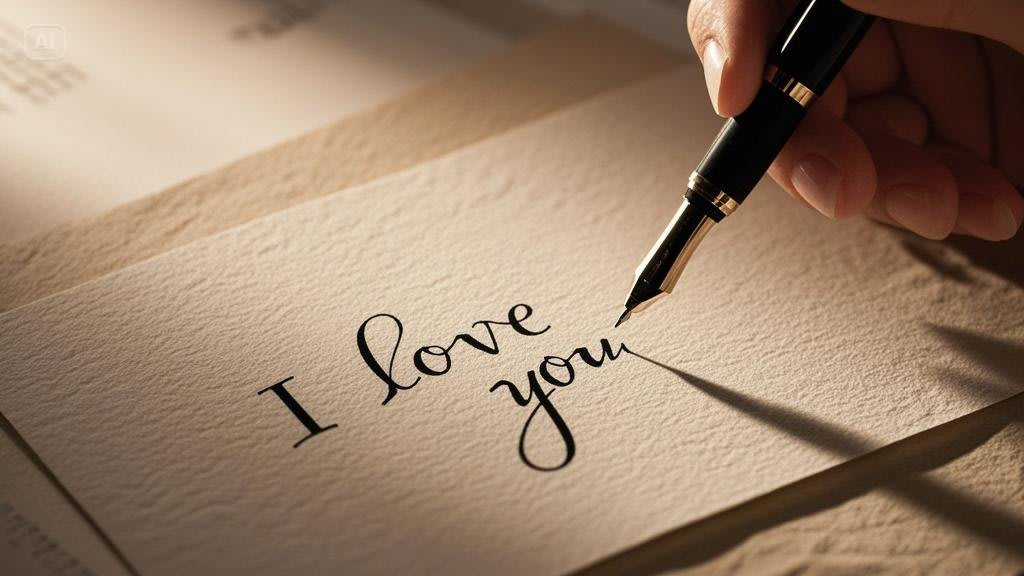 AI
I love
you